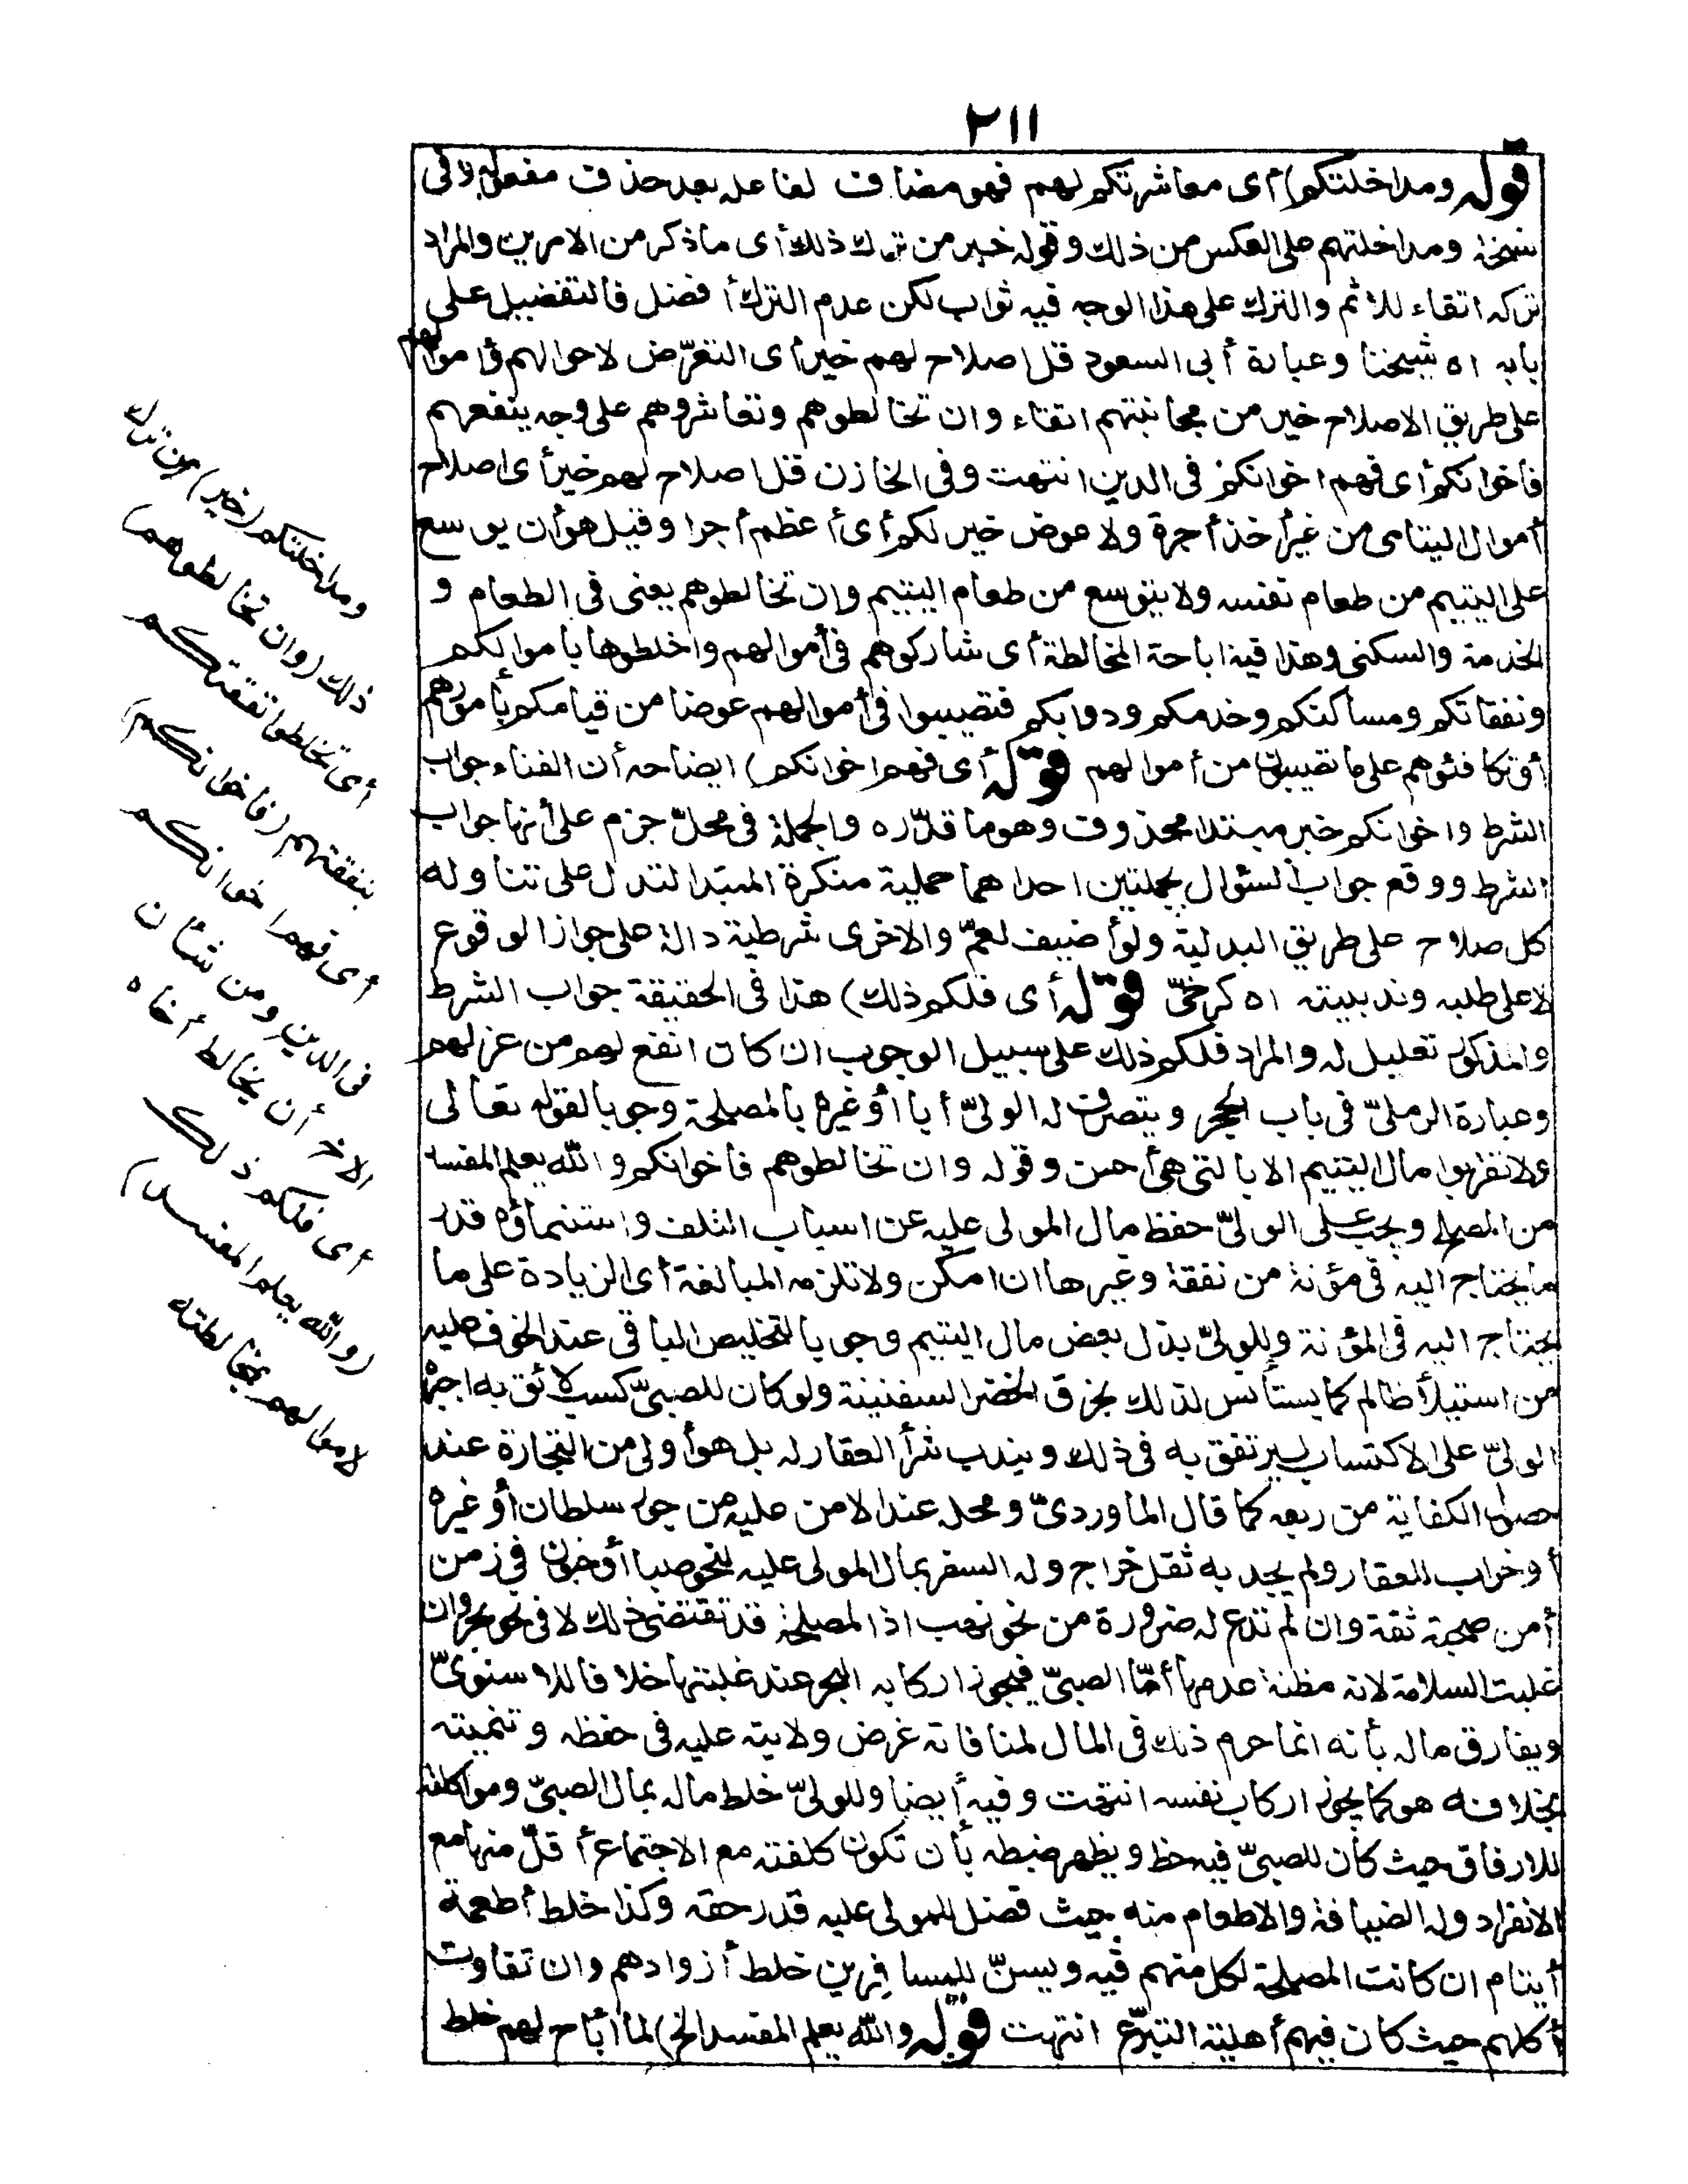 ٢١١
قوله ومداخلتكم) أى معاشرتكم لهم فهو مضاف لفاعله بعد حذف مفعوله وفى
نسخة ومداخلتهم على العكس من ذلك وقوله خير من ترك ذلك أى ماذكر من الامرين والمراد
تركه اتقاء للاثم والترك على هذا الوجه فيه ثواب لكن عدم الترك أفضل فالتفضيل على
بابه اه شيخنا وعبارة أبى السعود قل اصلاح لهم خير أى التعرّض لاحوالهم وأموالهم
على طريق الاصلاح خير من مجانبتهم اتقاء وان تخالطوهم وتعاشروهم على وجه ينفعهم
فاخوانكم أى فهم اخوانكم فى الدين انتهت وفى الخازن قل اصلاح لهم خير أى اصلاح
أموال اليتامى من غير أخذ أجرة ولا عوض خير لكم أى أعظم أجرا وقيل هو أن يوسع
على اليتيم من طعام نفسه ولا يتوسع من طعام اليتيم وان تخالطوهم يعنى فى الطعام و
الخدمة والسكنى وهذا فيه اباحة المخالطة أى شاركوهم فى أموالهم واخلطوها باموالكم
ونفقاتكم ومساكنكم وخدمكم ودوابكم فتصيبوا فى أموالهم عوضا من قيامكم بأمورهم
أو تكافئوهم على ما تصيبون من أموالهم قوله أى فهم اخوانكم) ايضاحه أن الفاء جواب
الشرط واخوانكم خبر مبتدا محذوف وهو ما قدّره والجملة فى محلّ جزم على أنها جواب
الشرط ووقع جواب السؤال بجملتين احداهما حملية منكرة المبتدا لتدل على تناوله
كل صلاح على طريق البدلية ولو أضيف لعمّ والاخرى شرطية دالة على جواز الوقوع
لا على طلبه وندبيته اه كرخىّ قوله أى فلكم ذلك) هذا فى الحقيقة جواب الشرط
والمذكور تعليل له والمراد فلكم ذلك على سبيل الوجوب ان كان انفع لهم من عزلهم
وعبارة الرملىّ فى باب الحجر ويتصرف له الولىّ أبا أو غيره بالمصلحة وجوبا لقوله تعالى
ولا تقربوا مال اليتيم الا بالتى هى أحسن وقوله وان تخالطوهم فاخوانكم والله يعلم المفسد
من المصلح ويجب على الولىّ حفظ مال المولى عليه عن اسباب التلف واستنماؤه قدر
ما يحتاج اليه فى مؤنة من نفقة وغيرها ان امكن ولا تلزمه المبالغة أى الزيادة على ما
يحتاج اليه فى المؤنة وللولىّ بذل بعض مال اليتيم وجوبا لتخليص الباقى عند الخوف عليه
من استيلأ ظالم كما يستأنس لذلك بخرق الخضر السفنينة ولو كان للصبىّ كسب لائق به اجبره
الولىّ على الاكتساب ليرتفق به فى ذلك ويندب شرأ العقار له بل هو أولى من التجارة عند
حصول الكفاية من ريعه كما قال الماوردىّ ومحله عند الامن عليه من جور سلطان أو غيره
أو خراب للعقار ولم يجد به ثقل خراج وله السفر بمال المولى عليه لنحو صبا أو جنون فى زمن
أمن صحبة ثقة وان لم تدع له ضرورة من نحو نهب اذ المصلحة قد تقتضى ذلك لا فى نحو بحر وان
غلبت السلامة لانه مظنة عدمها أمّا الصبىّ فيجوز اركابه البحر عند غلبتها خلافا للاسنوىّ
ويفارق ماله بأنه انما حرم ذلك فى المال لمنافاته غرض ولايته عليه فى حفظه وتنميته
بخلافه هو كما يجوز اركاب نفسه انتهت وفيه أيضا وللولىّ خلط ماله بمال الصبىّ ومواكلته
للارفاق حيث كان للصبىّ فيه حظ ويظهر ضبطه بأن تكون كلفته مع الاجتماع أقلّ منها مع
الانفراد وله الضيافة والاطعام منه حيث فضل للمولى عليه قدر حقه وكذا خلط أطعمة
أيتام ان كانت المصلحة لكل منهم فيه ويسنّ للمسافرين خلط أزوادهم وان تفاوت
أكلهم حيث كان فيهم أهلية التبرّع انتهت قوله والله يعلم المفسد الخ) لما أباح لهم خلط
ومداخلتكم (خير) من ترك
ذلك (وان تخالطوهم)
أى تخلطوا نفقتكم
بنفقتهم (فاخوانكم)
أى فهم اخوانكم
فى الدين ومن شأن
الاخ أن يخالط أخاه
أى فلكم ذلك
(والله يعلم المفسد)
لاموالهم بمخالطته